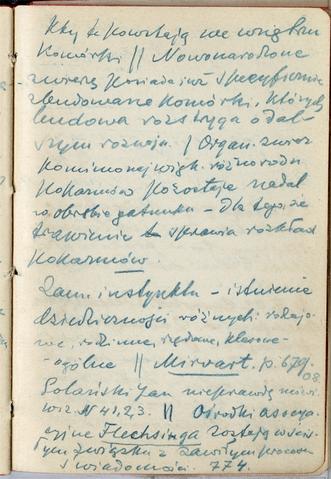 Kty te powstają we wnętrzu
komórki || Nowonarodzone
zwierzę posiada już specyficznie
zbudowane komórki, których
budowa rozstrzyga o dal-
szym rozwoju. / Organ. zwierz
komimo najwięk. różnorodn
pokarmów pozostaje nadal
w obrębie gatunku – Dla tego, że
trawienie sprawia rozkład
pokarmów.
Zam. instynktu – istnienie
dziedziczności różnych: rodzajo-
we, rodzinne, rzędowe, klasowe
ogólne || Mirvart. p. 679.
08
Polański Jan nieprawdę mówi
w z. N 41, 2, 3. || Ośrodki asocya-
cyjne Flechsinga zostają w ści-
łym związku z zawiłym procesem
świadomości. 774.